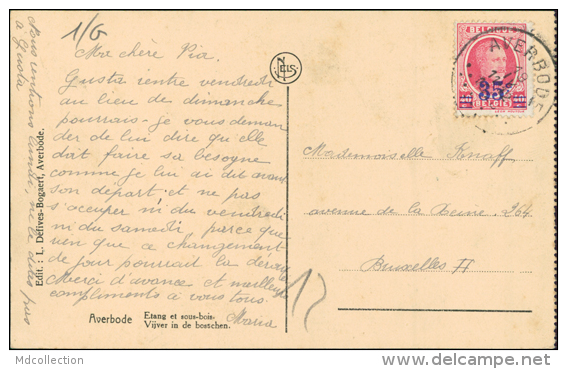 1/G
Ma chère Pia.
Gusta rentre vendredi
au lieu de dimanche
pourrais-je vous deman
der de lui dire qu'elle
doit faire sa besogne
comme je lui ai dit avant
son départ et ne pas
s'occuper ni du vendredi
ni du samedi, parce que
rien que ce changement
de jour pourrait la déro
Merci d'avance et meilleurs
compliments à vous tous.
Maria
Nous rentrons lundi, ne le dites pas
à Gusta
Edit.: L. Défives-Bogaert, Averbode.
Averbode Etang et sous-bois.
Vijver in de bosschen.
NELS
BELGIË
35c
BELGIQUE
AVERBODE
Mademoiselle Knaff
avenue de la Reine 264
Bruxelles II
Mdcollection
http://www.delcampe.net